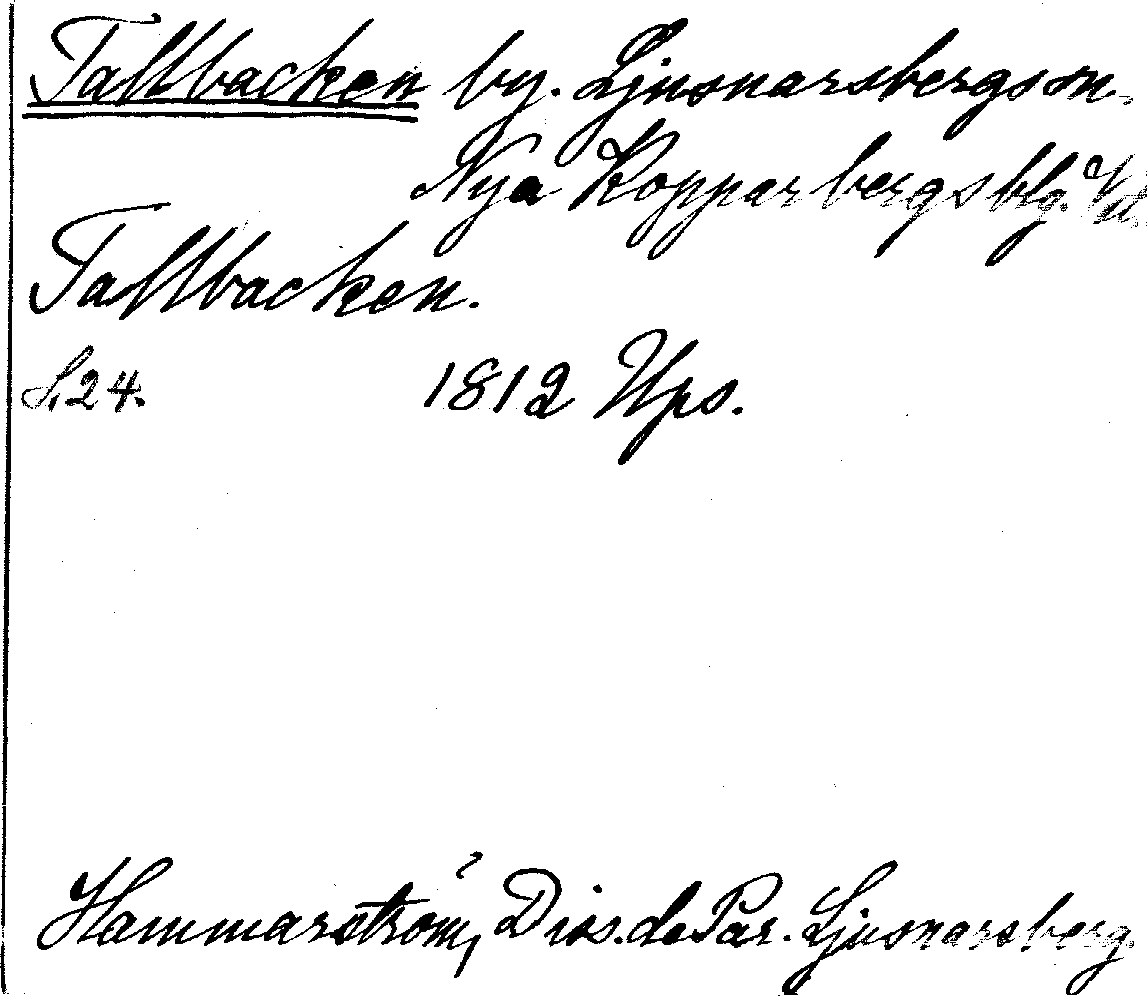 Tallbacken by. Ljusnarsbergs sn.
Nya Kopparbergs blg.
Tallbacken.
S. 24. 1812 Ups.
Hammarström, Diss. de Par. Ljusnarsberg.